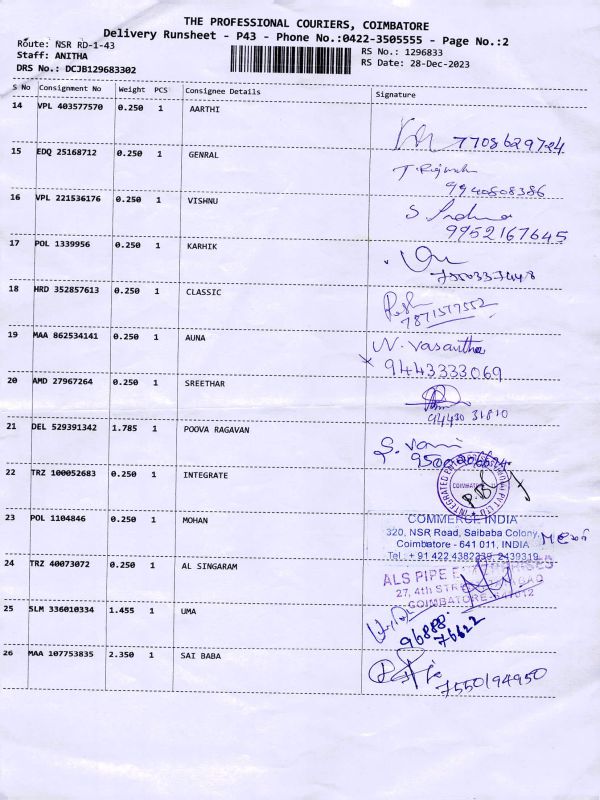 THE PROFESSIONAL COURIERS, COIMBATORE
Delivery Runsheet - P43 - Phone No.:0422-3505555 - Page No.:2
Route: NSR RD-1-43
RS No.: 1296833
Staff: ANITHA
RS Date: 28-Dec-2023
DRS No.: DCJB129683302
S No Consignment No Weight PCS Consignee Details Signature
14 VPL 403577570 0.250 1 AARTHI
7708629724
15 EDQ 25168712 0.250 1 GENRAL
9940808386
16 VPL 221536176 0.250 1 VISHNU
9952167645
17 POL 1339956 0.250 1 KARHIK
18 HRD 352857613 0.250 1 CLASSIC
7871577552
19 MAA 862534141 0.250 1 AUNA
N. Vasantha
9443333069
20 AMD 27967264 0.250 1 SREETHAR
94430 31810
21 DEL 529391342 1.785 1 POOVA RAGAVAN
S. Vani
22 TRZ 100052683 0.250 1 INTEGRATE
23 POL 1104846 0.250 1 MOHAN
COMMERCE INDIA
320, NSR Road, Saibaba Colony,
Coimbatore - 641 011, INDIA
Tel : + 91 422 4382239, 2439319
24 TRZ 40073072 0.250 1 AL SINGARAM
ALS PIPE
27, 4th
COIMBATORE
25 SLM 336010334 1.455 1 UMA
96888
76622
26 MAA 107753835 2.350 1 SAI BABA
7550194950